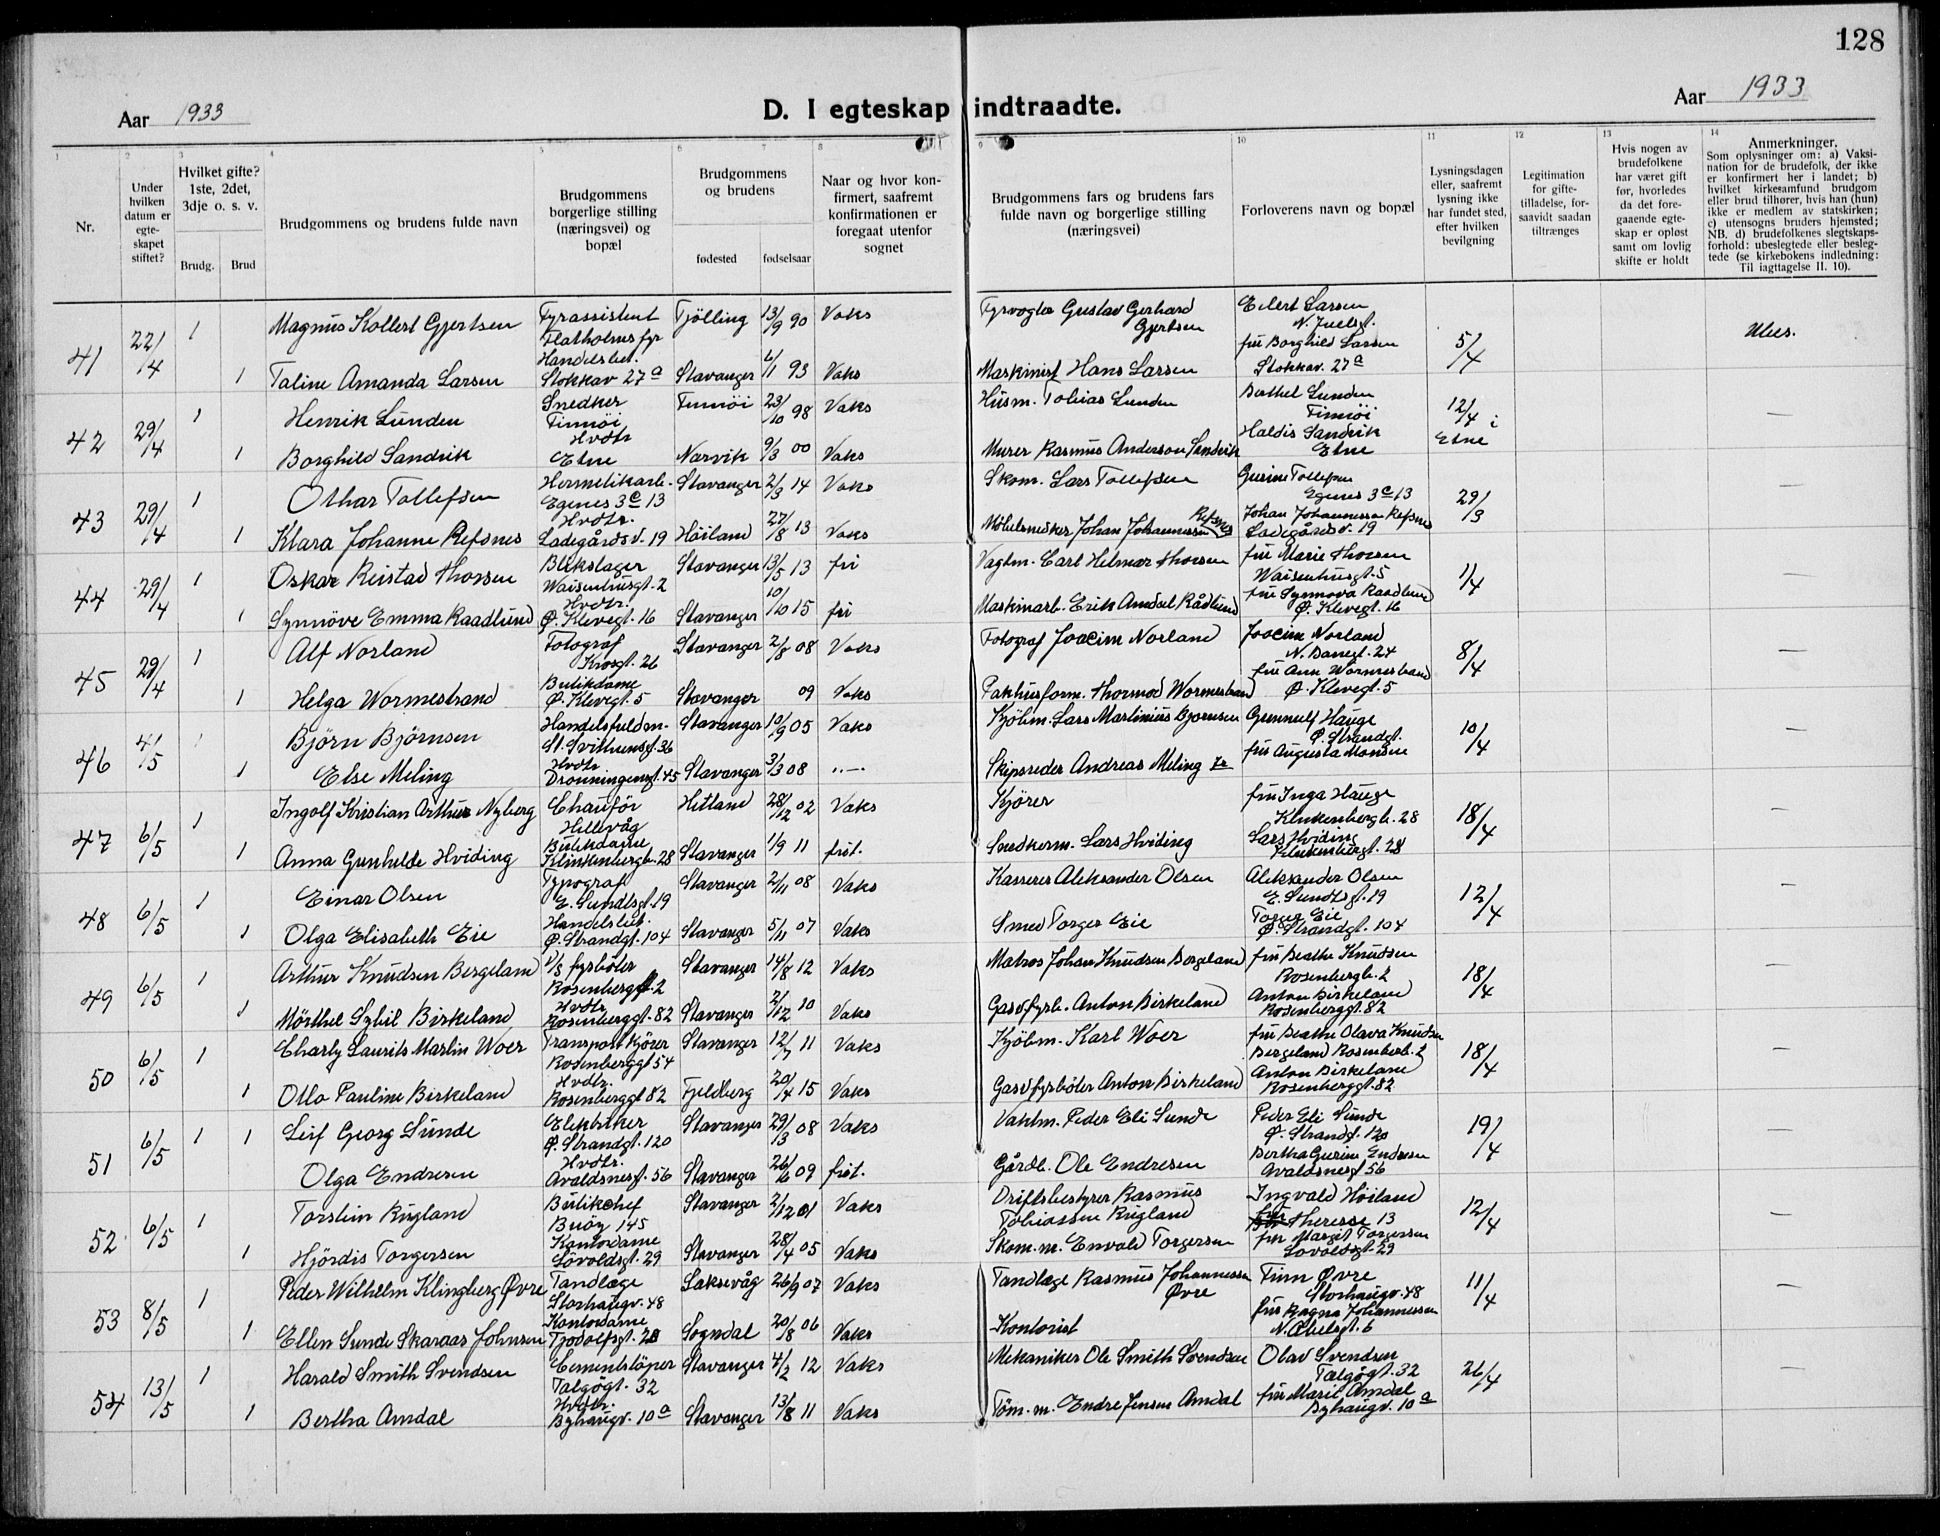 128
Aar 1933
D. I egteskap indtraadte.
Aar 1933
1 2 3 4 5 6 7 8 9 10 11 12 13 14
Nr.
Under hvilken datum er egte-skapet stiftet?
Hvilket gifte? 1ste, 2det, 3dje o. s. v.
Brudg. Brud
Brudgommens og brudens fulde navn
Brudgommens borgerlige stilling (næringsvei) og bopæl
Brudgommens og brudens
fødested fødselsaar
Naar og hvor kon-firmert, saafremt konfirmationen er foregaat utenfor sognet
Brudgommens fars og brudens fars fulde navn og borgerlige stilling (næringsvei)
Forloverens navn og bopæl
Lysningsdagen eller, saafremt lysning ikke har fundet sted, efter hvilken bevilgning
Legitimation for gifte-tilladelse, for-saavidt saadan tiltrænges
Hvis nogen av brudefolkene har været gift før, hvorledes da det fore-gaaende egte-skap er opløst samt om lovlig skifte er holdt
Anmerkninger.
Som oplysninger om: a) Vaksi-nation for de brudefolk, der ikke er konfirmert her i landet; b) hvilket kirkesamfund brudgom eller brud tilhører, hvis han (hun) ikke er medlem av statskirken; c) utensogns bruders hjemsted; NB. d) brudefolkenes slegtskaps-forhold: ubeslegtede eller besleg-tede (se kirkebokens indledning: Til iagttagelse II. 10).
41 22/4 1 Magnus Kollert Gjertsen Fyrassistent Flatholmsfyr Tjölling 13/9 90 Vaks Fyrvogter Gustav Gerhard Gjertsen Eilert Larsen N. Juelsgt. 5/4 Ubes.
1 Taline Amanda Larsen Handelsbet. Stokkav 27a Stavanger 6/11 93 Vaks Maskinist Hans Larsen fru Borghild Larsen Stokkav. 27a
42 29/4 1 Henrik Lunden Snedker Finnöi Finnöi 23/10 98 Vaks Husm. Tobias Lunden Berthel Lunden Finnöi 12/4 i Etne —
1 Borghild Sandvik Hvdtr Etne Narvik 9/3 00 Vaks Murer Rasmus Anderson Sandvik Haldis Sandvik Etne
43 29/4 1 Othar Tollefsen Hermetikarb. Egenes 3e 13 Stavanger 2/3 14 Vaks Skom. Lars Tollefsen Gurine Tollefsen Egenes 3e 13 29/3 —
1 Klara Johanne Refsnes Hvdtr. Ladegårdsv. 19 Høiland 27/8 13 Vaks Möbelsnedker Johan Johannessen Refsnes Johan Johannessen Refsnes Ladegårdsv. 19
44 29/4 1 Oskar Reistad Thorsen Blikslager Waisenhusgt. 2 Stavanger 13/5 13 fri Vagtm. Carl Helmer Thorsen fru Marie Thorsen Waisenhusgt. 5 1/4 —
1 Synnöve Emma Raadlund Hvdtr. Ø. Klevegt. 16 Stavanger 10/10 15 fri Maskinarb. Erik Amdal Rådlund fru Synnova Raadlund Ø. Klevegt. 16
45 29/4 1 Alf Norland Fotograf Krosgt. 26 Stavanger 2/8 08 Vaks Fotograf Joacim Norland Joacim Norland N. Banegt. 24 8/4 —
1 Helga Wormestrand Butikdame Ø. Klevegt. 5 Stavanger 09 Vaks Pakhusform. Thormod Wormestrand fru Ann Wormestrand Ø. Klevegt. 5
46 4/5 1 Björn Björnsen Handelsfuldm. St. Svithunsgt. 36 Stavanger 10/9 05 Vaks Kjöbm. Lars Martinius Bjornsen Gunnulf Hauge Ø. Strandgt. 10/4 —
1 Else Meling Hvdtr Dronningensgt. 45 Stavanger 3/3 08 „— Skipsreder Andreas Meling fru Augusta Monsen
47 6/5 1 Ingolf Kristian Arthur Nyberg Chauför Hillevåg Hetland 28/12 02 Vaks Kjörer fru Inga Hauge Klinkenbergb. 28 18/4 —
1 Anna Gunhilde Hviding Butikdame Klinkenbergb. 28 Stavanger 1/9 11 frit. Snedkerm. Lars Hviding Lars Hviding Klinkenbergt. 28
48 6/5 1 Einar Olsen Typograf E. Sundtsgt. 19 Stavanger 2/11 08 Vaks Kasserer Aleksander Olsen Aleksander Olsen E. Sundtsgt. 19 12/4 —
1 Olga Elisabeth Eie Handelsbet. Ø. Strandgt. 104 Stavanger 5/11 07 Vaks Smed Torger Eie Torger Eie Ø. Strandgt. 104
49 6/5 1 Arthur Knudsen Bergeland D/S fyrböter Rosenberggt. 2 Stavanger 14/8 12 Vaks Matros Johan Knudsen Bergeland fru Beathe Knudsen Rosenbergb. 2 18/4 —
1 Mörthel Sybil Birkeland Hvdtr Rosenberggt. 82 Stavanger 2/12 10 Vaks Gasvfyrb. Anton Birkeland Anton Birkeland Rosenberggt. 82
50 6/5 1 Charly Laurits Martin Woer Transportkjörer Rosenberggt 54 Stavanger 12/7 11 Vaks Kjöbm. Karl Woer fru Beathe Olava Knudsen Bergeland Rosenberb. 2 18/4 —
1 Otto Pauline Birkeland Hvdtr. Rosenberggt 82 Fjeldberg 20/4 15 Vaks Gasvfyrböter Anton Birkeland Anton Birkeland Rosenberggt. 82
51 6/5 1 1 Leif Georg Sunde Elektriker Ø. Strandgt. 120 Stavanger 29/3 08 Vaks Vaktm. Peder Eli Sunde Peder Eli Sunde Ø. Strandgt. 120 19/4 —
Olga Endresen Hvdtr. Avaldsnesgt. 56 Stavanger 26/6 09 frit. Gårdb. Ole Endresen Bertha Gurine Endresen Avaldsnesgt 56
52 6/5 1 Torstein Rugland Butikchef Buöy 145 Stavanger 2/12 01 Vaks Driftsbestyrer Rasmus Tobiassen Rugland Ingvald Höiland Therese 13 12/4 —
1 Hjördis Torgersen Kontordame Lövoldsgt. 29 Stavanger 28/4 05 Vaks Skom. m. Envald Torgersen fru Margit Torgersen Lovoldsgt. 29
53 8/5 1 Peder Wilhelm Klingberg Øvre Tandlæge Storhaugv. 48 Laksevåg 26/9 07 Vaks Tandlæge Rasmus Johannessen Øvre Finn Øvre Storhaugv. 48 11/4 —
1 Ellen Sunde Skaraas Johnsen Kontordame Tjodolfsgt. 28 Sogndal 20/8 06 Vaks Kontorist fru Ragna Johannessen N. Abelsgt. 6
54 13/5 1 Harald Smith Svendsen Cementstöper Talgögt. 32 Stavanger 4/2 12 Vaks Mekaniker Ole Smith Svendsen Olav Svendsen Talgögt. 32 26/4 —
1 Bertha Amdal Hvdtr. Byhaugv. 10a Stavanger 13/8 11 Vaks Töm. m. Endre Jensen Amdal fru Marie Amdal Byhaugv. 10a